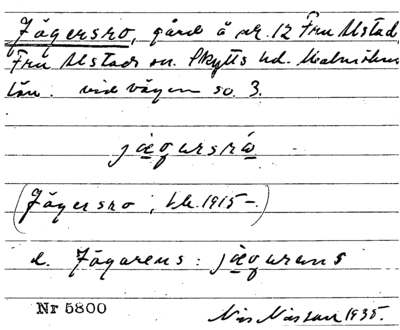 Jägersro, gård å nr. 12 Fru Alstad,
Fru Alstads sn. Skytts hd. Malmöhus
län. vid vägen so. 3.
jägursrå
(Jägersro, t.k. 1915-.)
d. Jägarens: jägurens
Nr 5800
Nils Nilsson 1935.